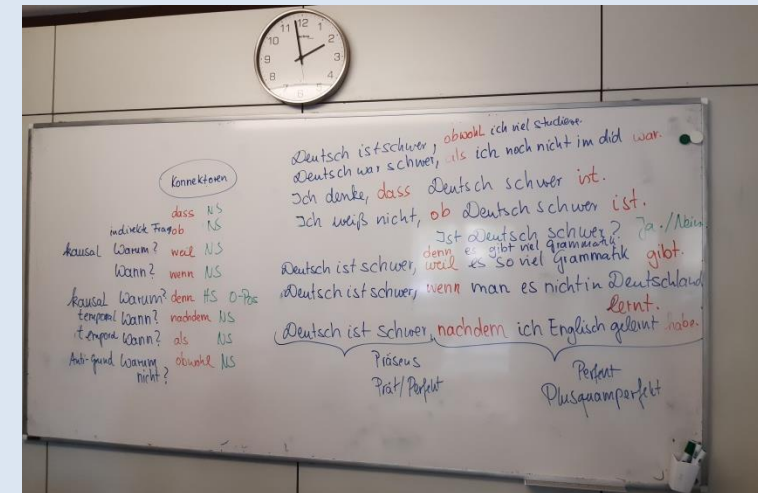 11 12 1
10 2
9 3
8 4
7 6 5
Konnektoren
dass NS
indirekte Frage ob NS
kausal Warum? weil NS
Wann? wenn NS
kausal Warum? denn HS 0-Pos
temporal Wann? nachdem NS
temporal Wann? als NS
Anti-grund Warum obwohl NS
nicht?
Deutsch ist schwer, obwohl ich viel studiere.
Deutsch war schwer, als ich noch nicht im did war.
Ich denke, dass Deutsch schwer ist.
Ich weiß nicht, ob Deutsch schwer ist.
Ist Deutsch schwer? Ja./Nein
denn es gibt viel Grammatik.
Deutsch ist schwer, weil es so viel Grammatik gibt.
Deutsch ist schwer, wenn man es nicht in Deutschland
lernt.
Deutsch ist schwer, nachdem ich Englisch gelernt habe.
Präsens
Prät/Perfekt
Perfekt
Plusquamperfekt